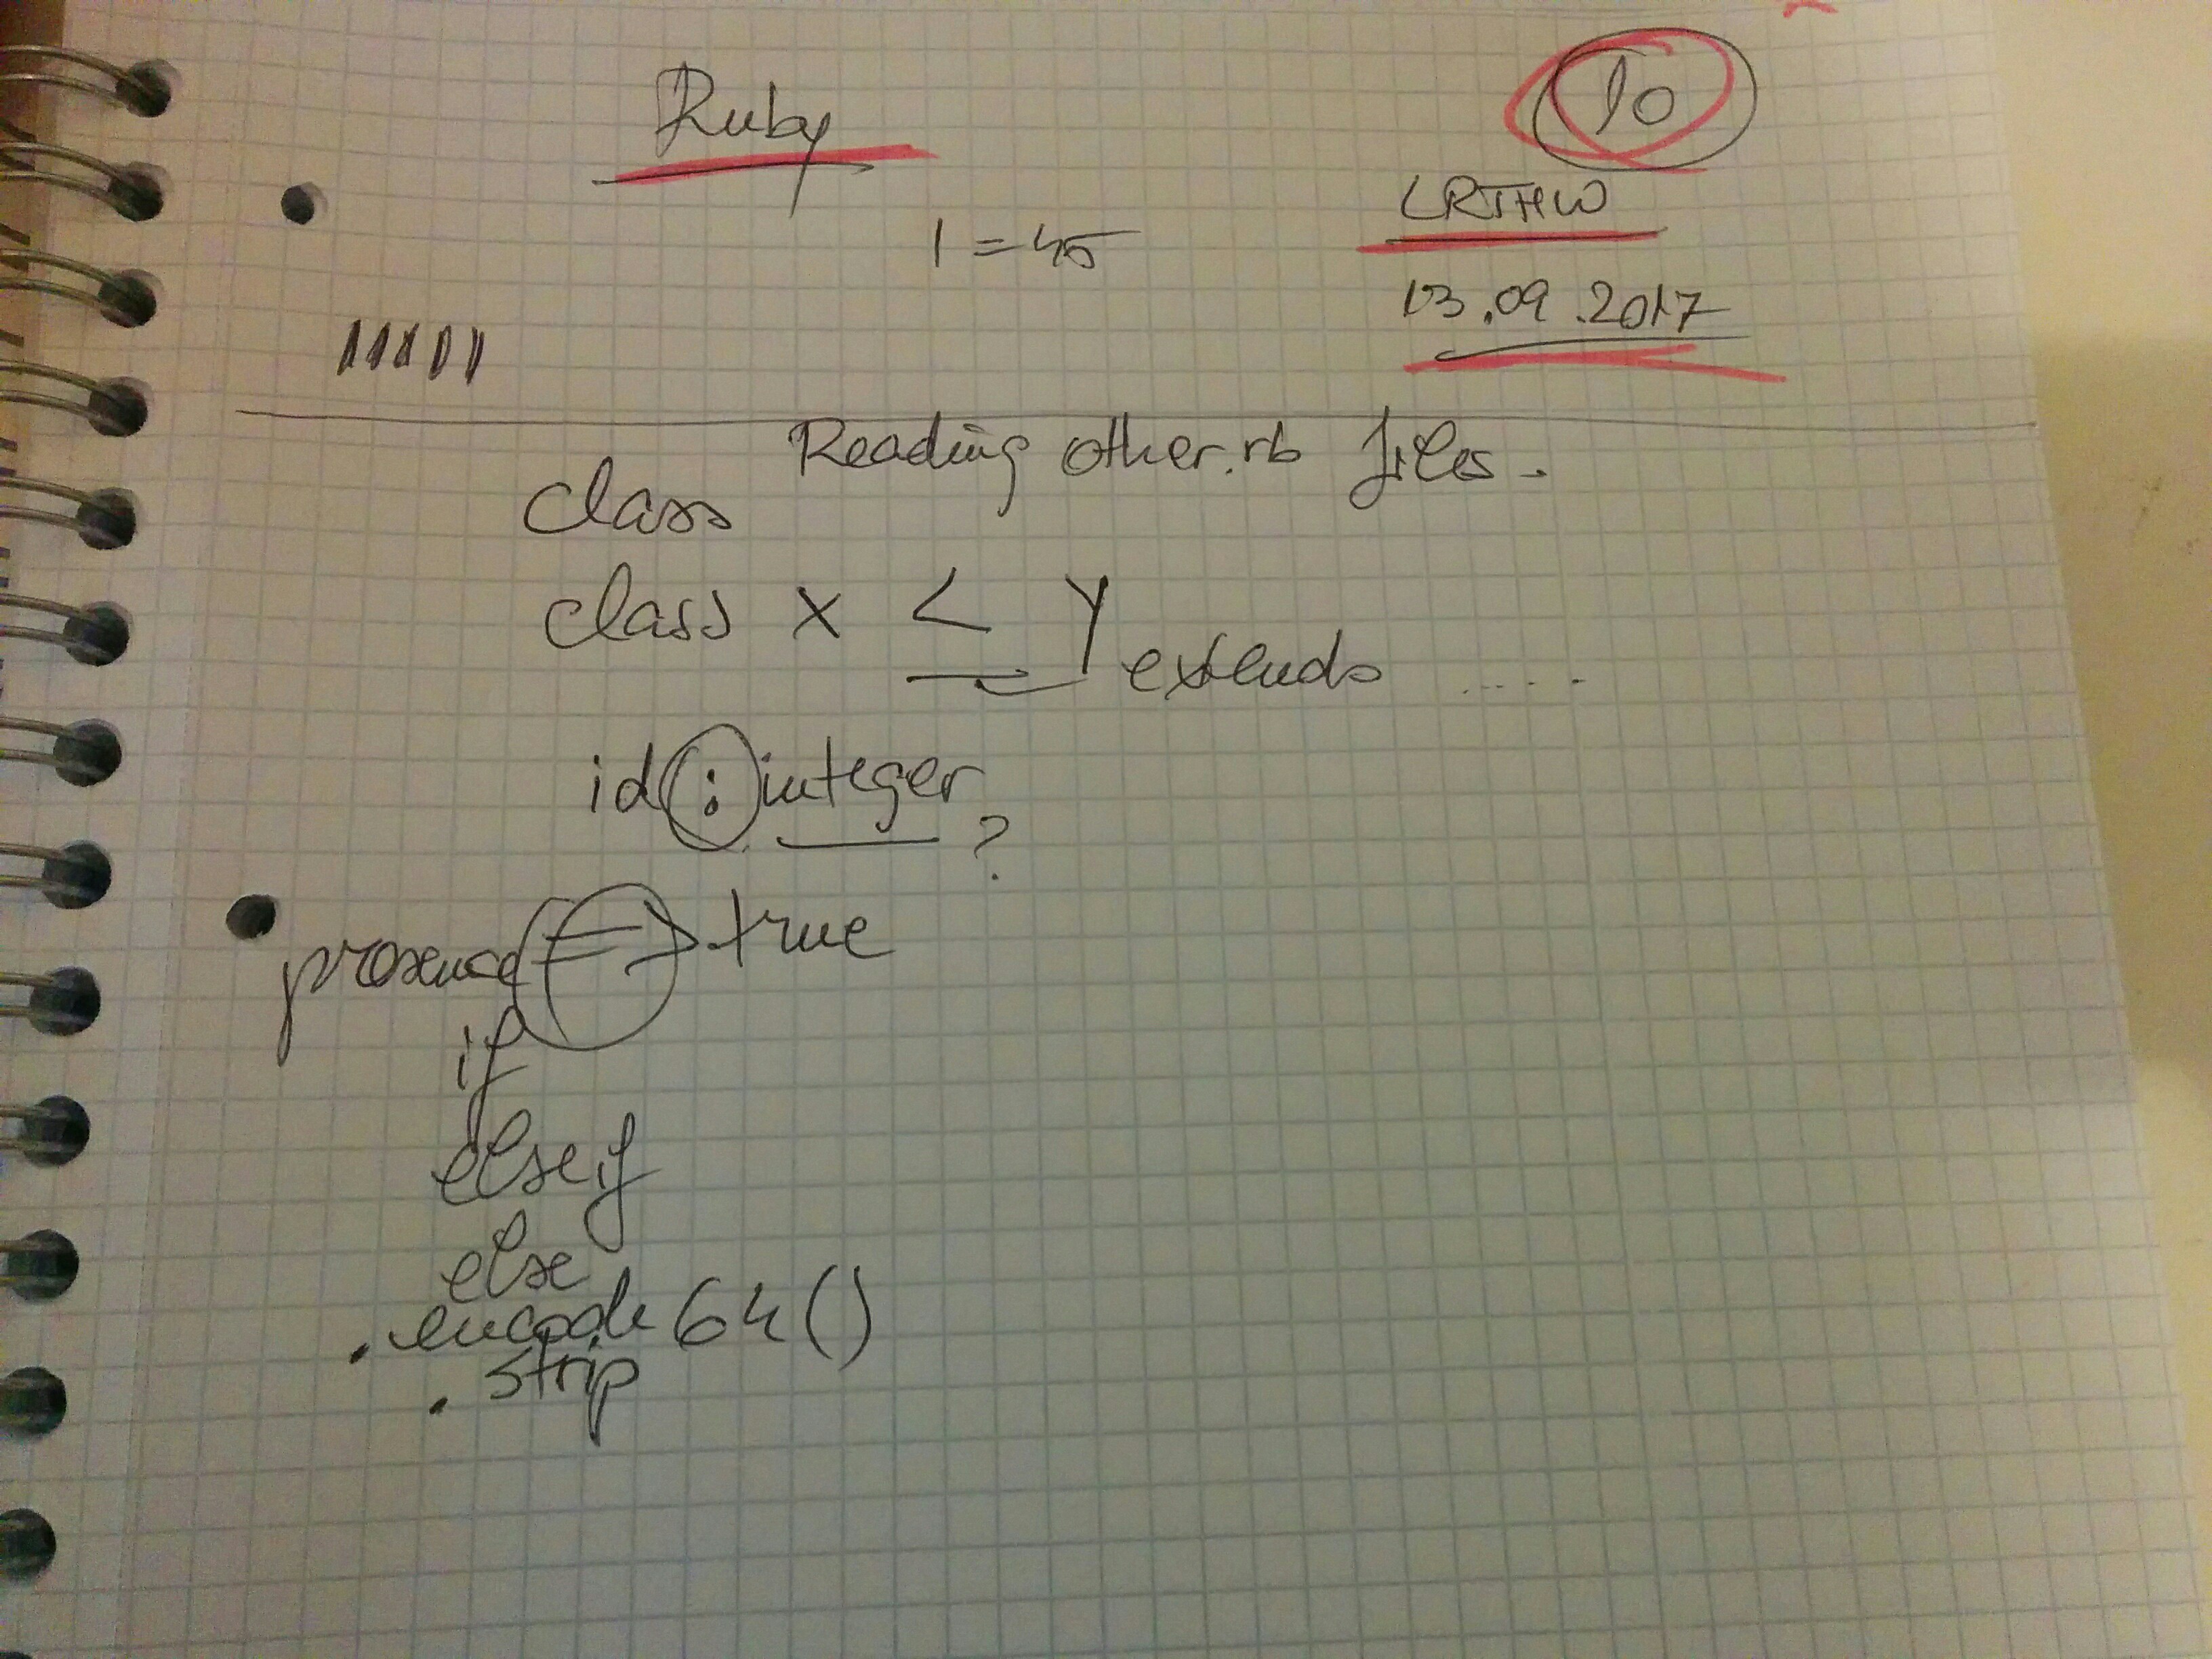 Ruby
10
LRTHW
1 = 45
13.09.2017
Reading other.rb files.
class
class x < y extends ....
id : integer ?
presence => true
if
elseif
else
.encode64()
.strip